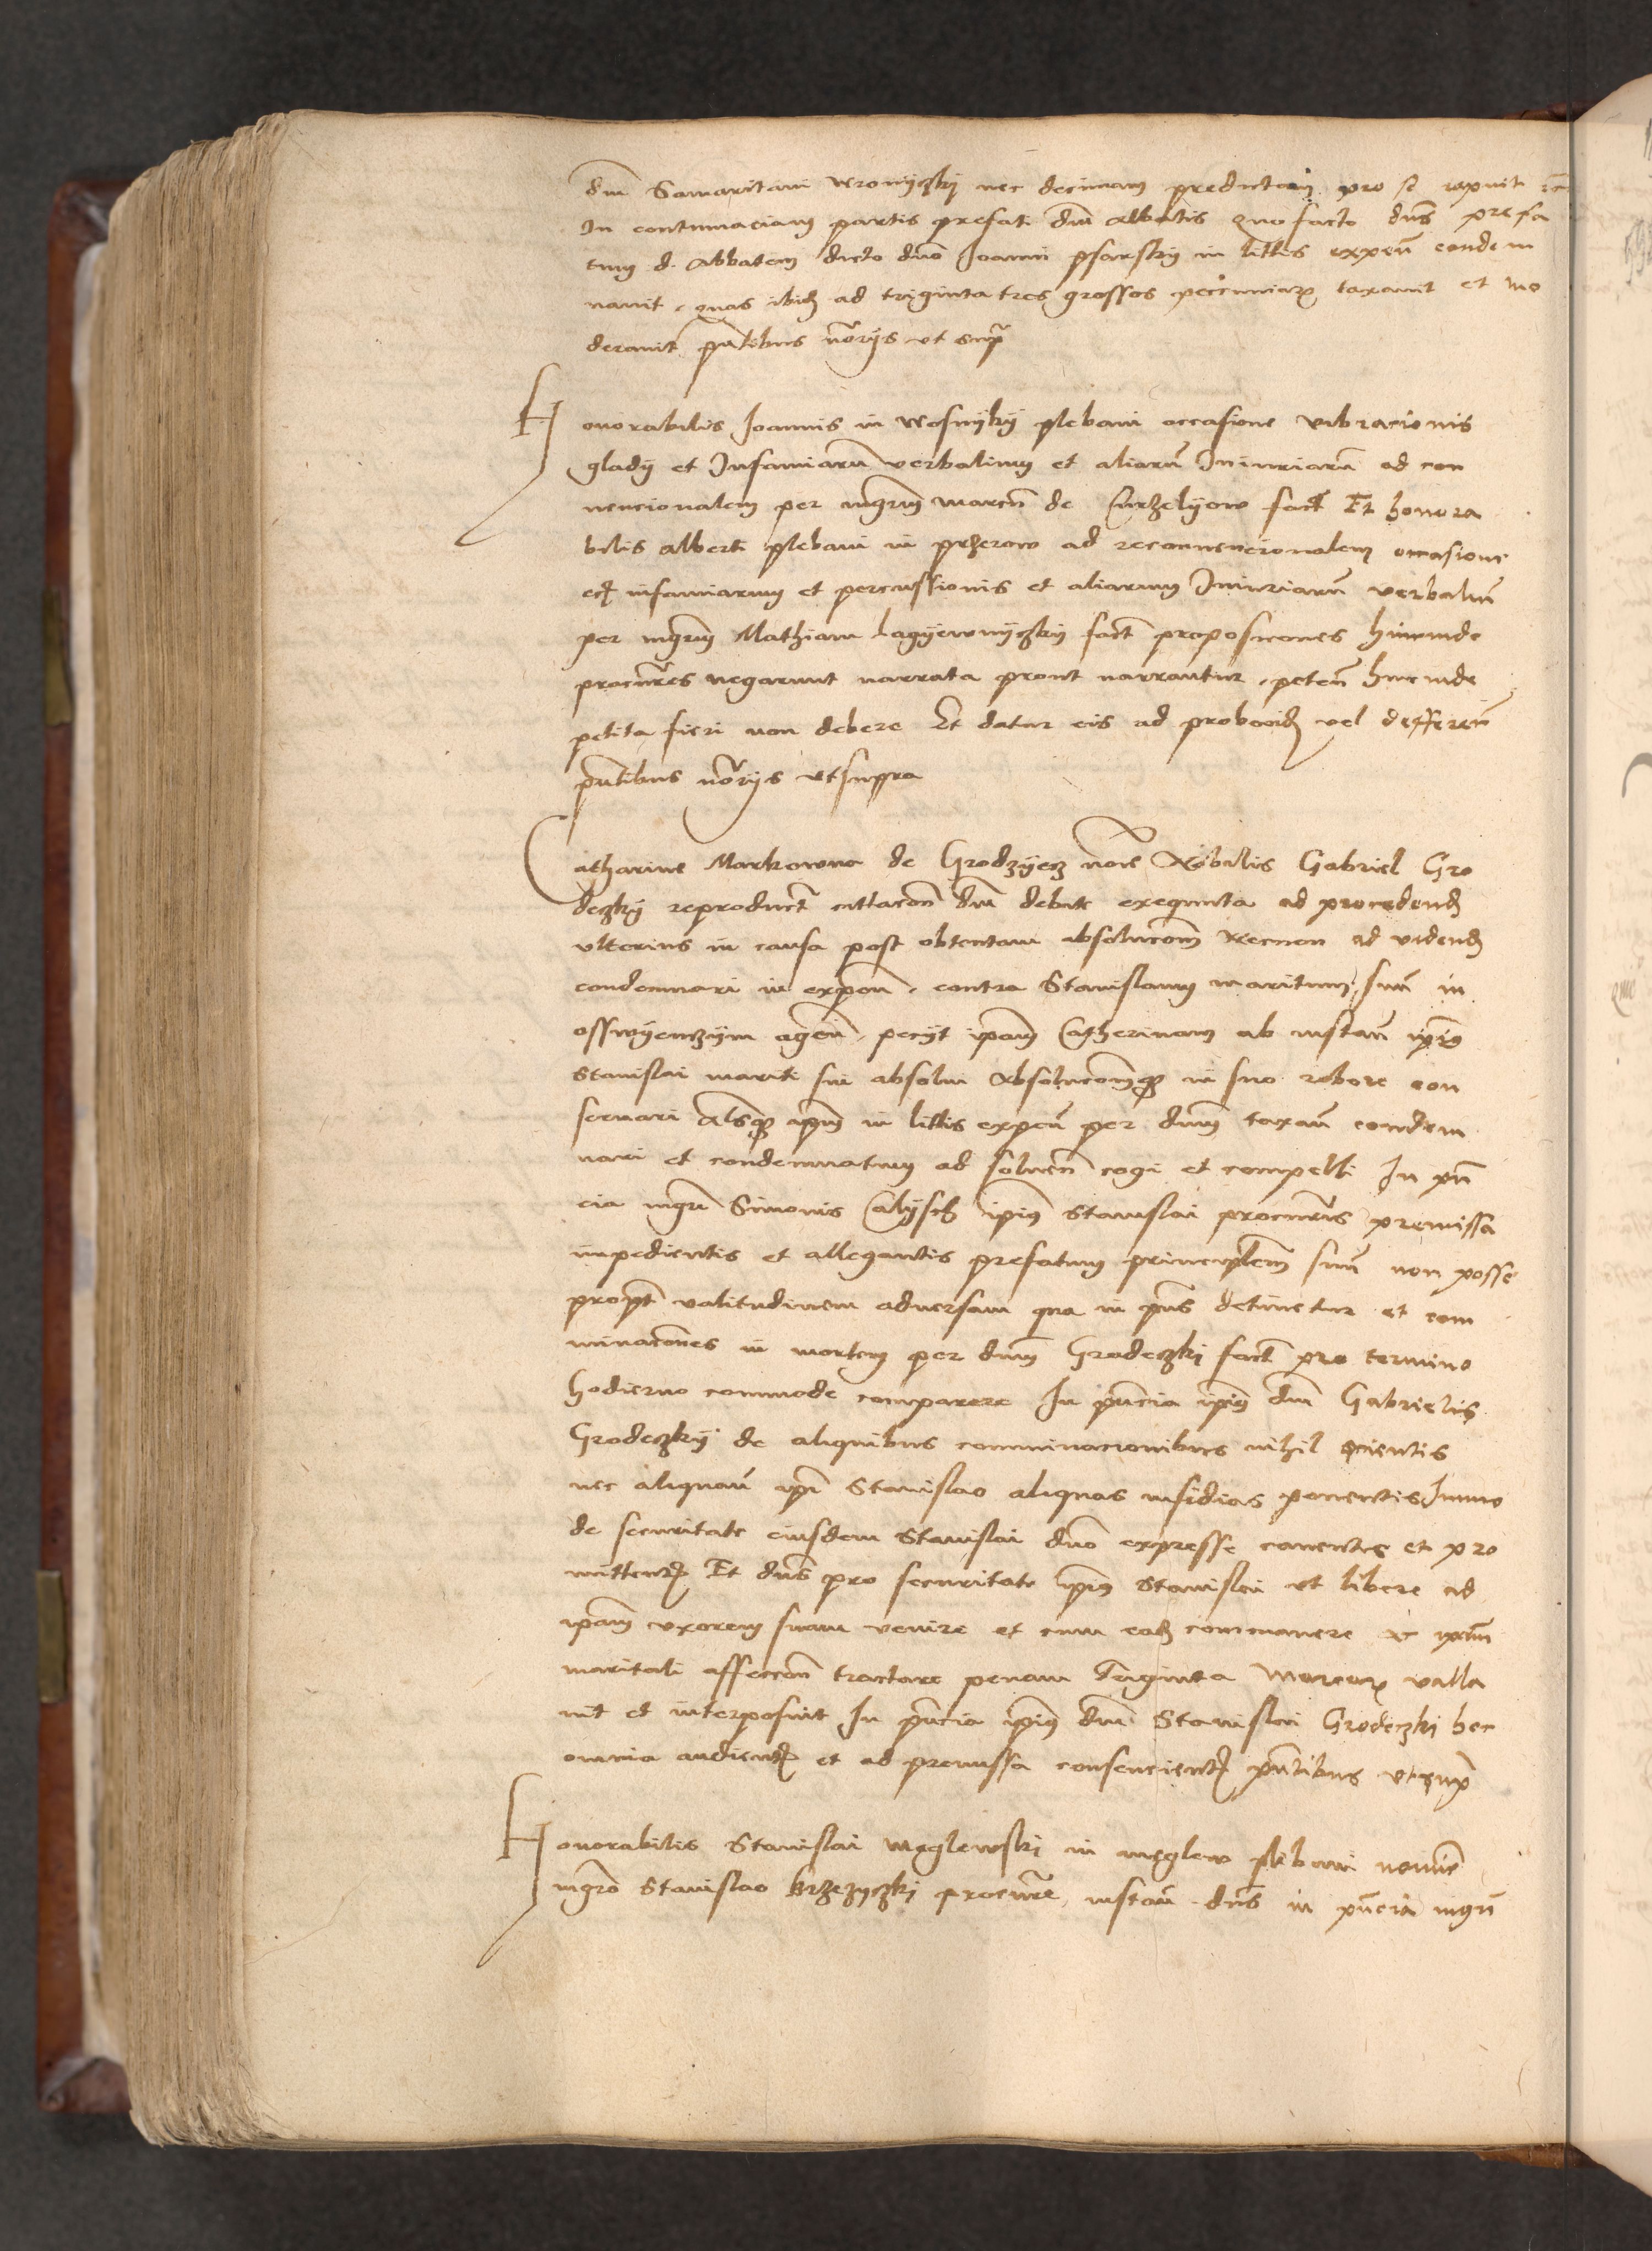 dni Samaritani Wronyczky nec decimam predictam pro se rapuit
In contumaciam partis prefati dni Abbatis Quo facto dns prefa
tum d. Abbatem dicto dno Joanni psarsky in littis expen condem
navit, quas ibid ad triginta tres grossos pecuniar taxavit et mo
deravit pntibus notarijs ut supra
Honorabilis Joannis in Wosnyky plebani occasione vibracionis
gladij et Infamiarum verbalium et aliarum Iniuriarum ad con
vencionalem per mgrum marcn de Curzelyow fact Et honora
bilis alberti plebani in przerow ad reconvencionalem occasione
infamiarum et percussionis et aliarum Iniuriarum verbalium
per mgrum Mathiam Lagyewnyczky fact proposiciones hincinde
procuratores negarunt narrata prout narrantur, peten hincinde
petita fieri non debere Et datur eis ad proband vel defferen
pntibus notarijs ut supra
Catharine Markowna de Grodzyecz noie Nobilis Gabriel Gro
deczky reproduct citacion dni debite exequuta ad procedend
ulterius in causa post obtentam absolucionem Necnon ad vidend
condemnari in expen, contra Stanislaum maritum suum in
osswyenczym agen, pecijt ipam Catherinam ab instan ipius
Stanislai mariti sui absolvi Absolucionemque in suo robore con
servari ipum in littis expen per dnum taxan condem
nari et condemnatum ad solven cogi et compelli In pn
cia mgri Simonis Calysch ipius Stanislai procuratoris premissa
impedientis et allegantis prefatum principalem suum non posse
propt valitudinem adversam qua in pns detinetur et com
minaciones in mortem per dnum Grodeczki fact pro termino
hodierno commode comparere In pncia ipius dni Gabrielis
Grodeczky de aliquibus comminacionibus nihil scientis
nec aliquam ipi Stanislao aliquas insidias ponentis Immo
de securitate eiusdem Stanislai dno expresse caventis et pro
mitten Et dns pro securitate ipius Stanislai ut libere ad
ipam uxorem suam venire et cum ead commanere ac ipam
maritali affeccion tractare penam Triginta Marcar valla
vit et interposuit In pncia ipius dni Stanislai Grodeczki hec
omnia audient et ad premissa consencient pntibus ut supra
Honorabilis Stanislai Mąglewski in mąglew plebani nomine
mgro Stanislao Krzezyczki procuratore instan dns in pncia mgri